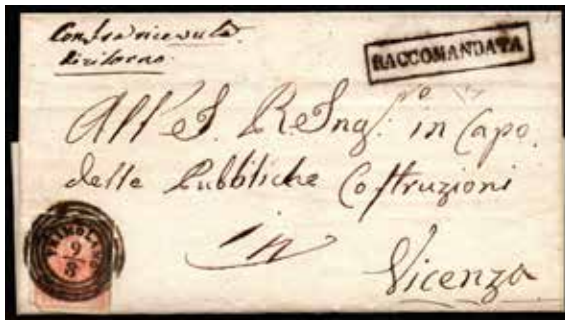 Contra ricevuta
di ritorno
RACCOMANDATA
All'eI. R Ingr. in Capo
delle Pubbliche Costruzioni
in
Vicenza
PRIMOLANO
9
8